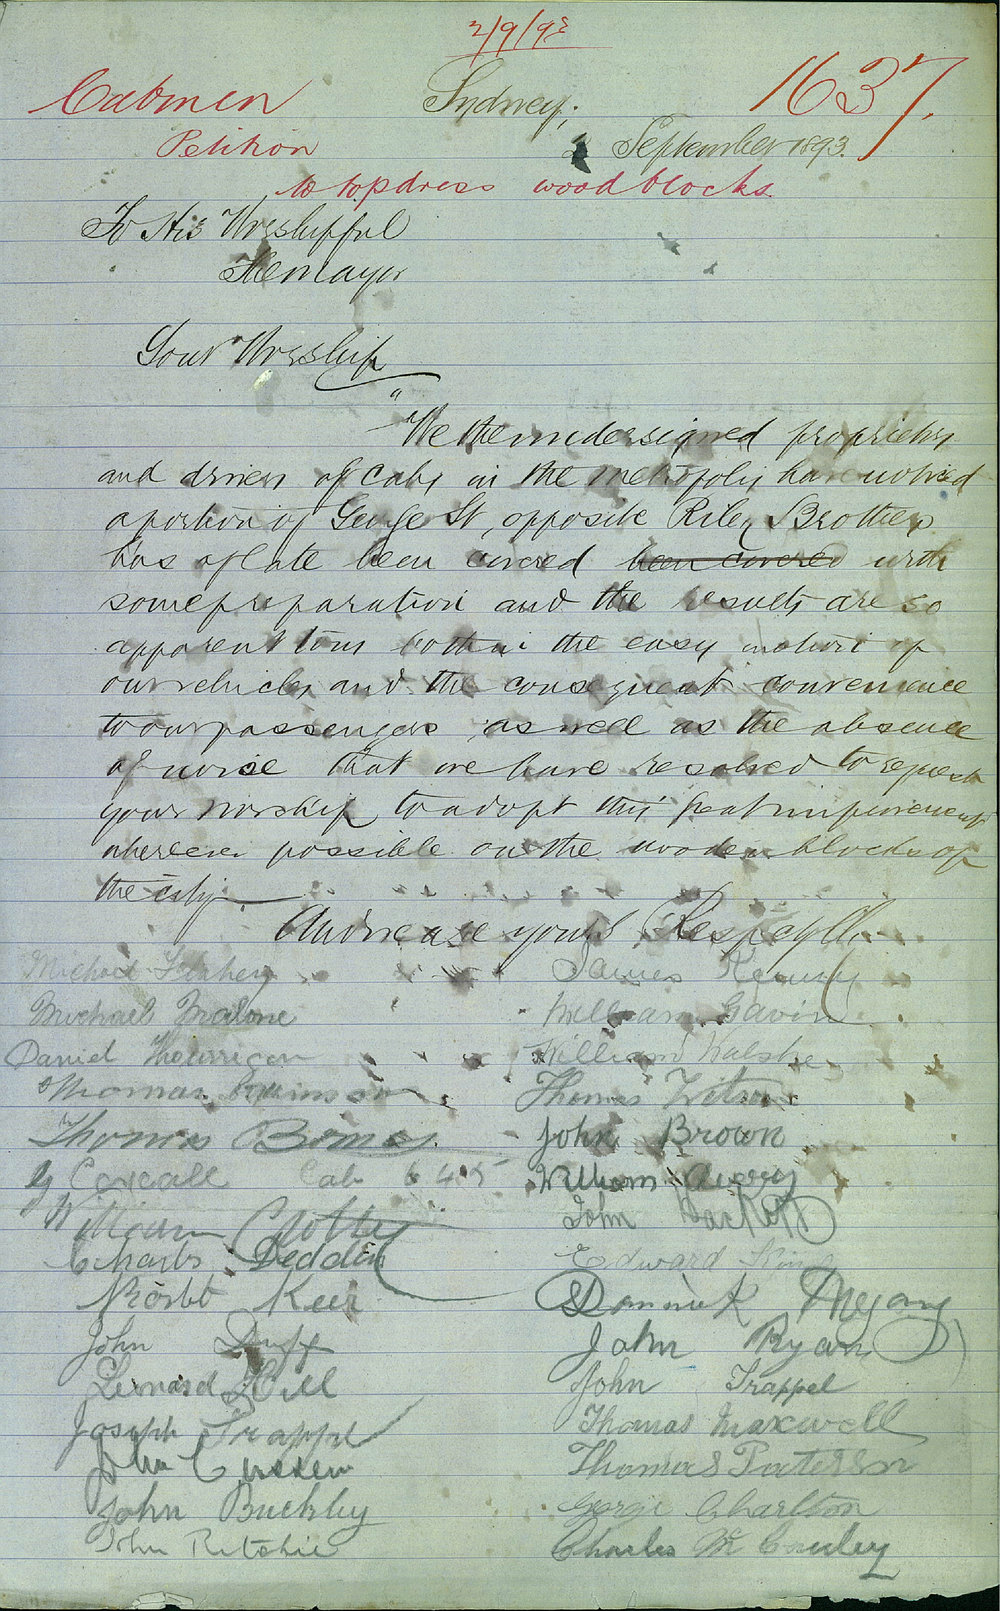 2/9/93
Cabmen Sydney, 1637.
Petition 2 September 1893.
to topdress woodblocks
To His Worshipful
The Mayor
Your Worship
"We the undersigned proprietors
and drivers of Cabs in the metropolis have noticed
a portion of George St, opposite Riley Brothers
has of late been covered been covered with
some preparation and the results are so
apparent to us both in the easy motion of
our vehicles and the consequent convenience
to our passengers as well as the absence
of noise that we have resolved to request
your worship to adopt this great improvement
wherever possible on the wooden blocks of
the city
And we are yours Respctflly
Michael James Kenny
Michael Malone William Gavin
Daniel Hourrigan William Walshe
Thomas Thomas Wilson
Thomas John Brown
Cab 645 William
William John Hackett
Charles Deddin Edward King
Robt Keir Dominick
John Duff John Ryan
Leonard Hill John Trappel
Joseph Trappel Thomas Maxwell
John Thomas Paterson
John Buckley George Charlton
John Ritchie Charles McCauley